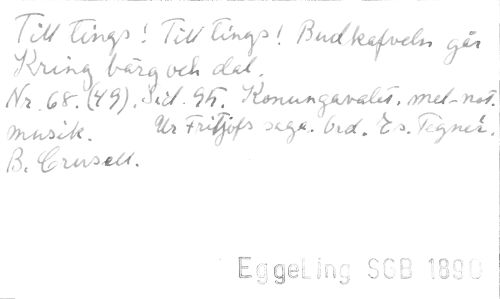 Till tings! Till tings! Budkafveln går
Kring bärg och dal.
Nr. 68. (49). Sid. 95. Konungavalet. mel-not.
musik. Ur Fritjofs saga. ord. Es. Tegnér.
B. Crusell.
Eggeling SGB 1890